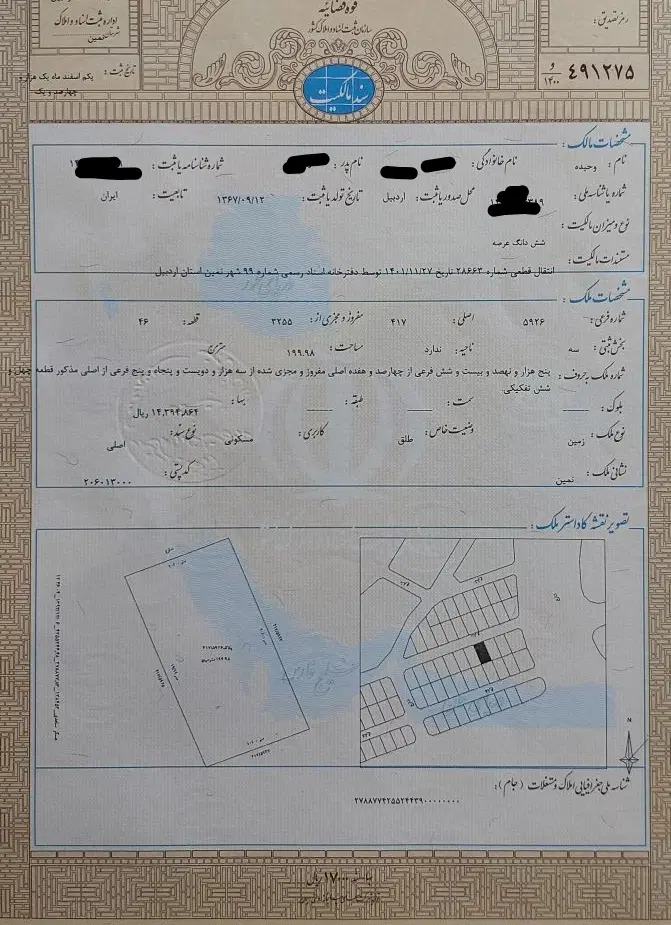 قوه قضائیه
سازمان ثبت اسناد و املاک کشور
اداره ثبت اسناد و املاک
شهرستان نمین
رمز تصدیق :
تاریخ ثبت : یکم اسفند ماه یک هزار و چهارصد و یک
سند مالکیت
۴۹۱۲۷۵ و ۱۴۰۰
مشخصات مالک :
نام : وحیده نام خانوادگی : نام پدر : شماره شناسنامه یا ثبت :
شماره یا شناسه ملی : محل صدور یا ثبت : اردبیل تاریخ تولد یا ثبت : ۱۳۶۷/۰۹/۱۲ تابعیت : ایران
نوع و میزان مالکیت :
شش دانگ عرصه
مستندات مالکیت :
انتقال قطعی شماره ۲۸۶۶۳ تاریخ ۱۴۰۱/۱۱/۲۷ توسط دفترخانه اسناد رسمی شماره ۹۹ شهر نمین استان اردبیل
مشخصات ملک :
شماره فرعی : ۵۹۲۶ اصلی : ۴۱۷ مفروز و مجزی از : ۳۲۵۵ قطعه : ۴۶
بخش ثبتی : سه ناحیه : ندارد مساحت : ۱۹۹.۹۸ مترمربع
شماره ملک به حروف : پنج هزار و نهصد و بیست و شش فرعی از چهارصد و هفده اصلی مفروز و مجزی شده از سه هزار و دویست و پنجاه و پنج فرعی از اصلی مذکور قطعه چهل و
شش تفکیکی
بلوک : ____ سمت : ____ طبقه : ____ بها : ۱۴,۳۹۴,۸۶۴ ریال
نوع ملک : زمین وضعیت خاص : طلق کاربری : مسکونی نوع سند : اصلی
نشانی ملک : نمین کد پستی : ۲۰۶۰۱۳۰۰۰
تصویر نقشه کاداستر ملک :
خلیج فارس
N
شناسه ملی جغرافیایی املاک و مستغلات (جام) :
۲۷۸۸۷۷۴۲۵۵۲۴۴۳۹۰۰۰۰۰۰۰۰۰
بها سند ۱۷۰۰۰ ریال